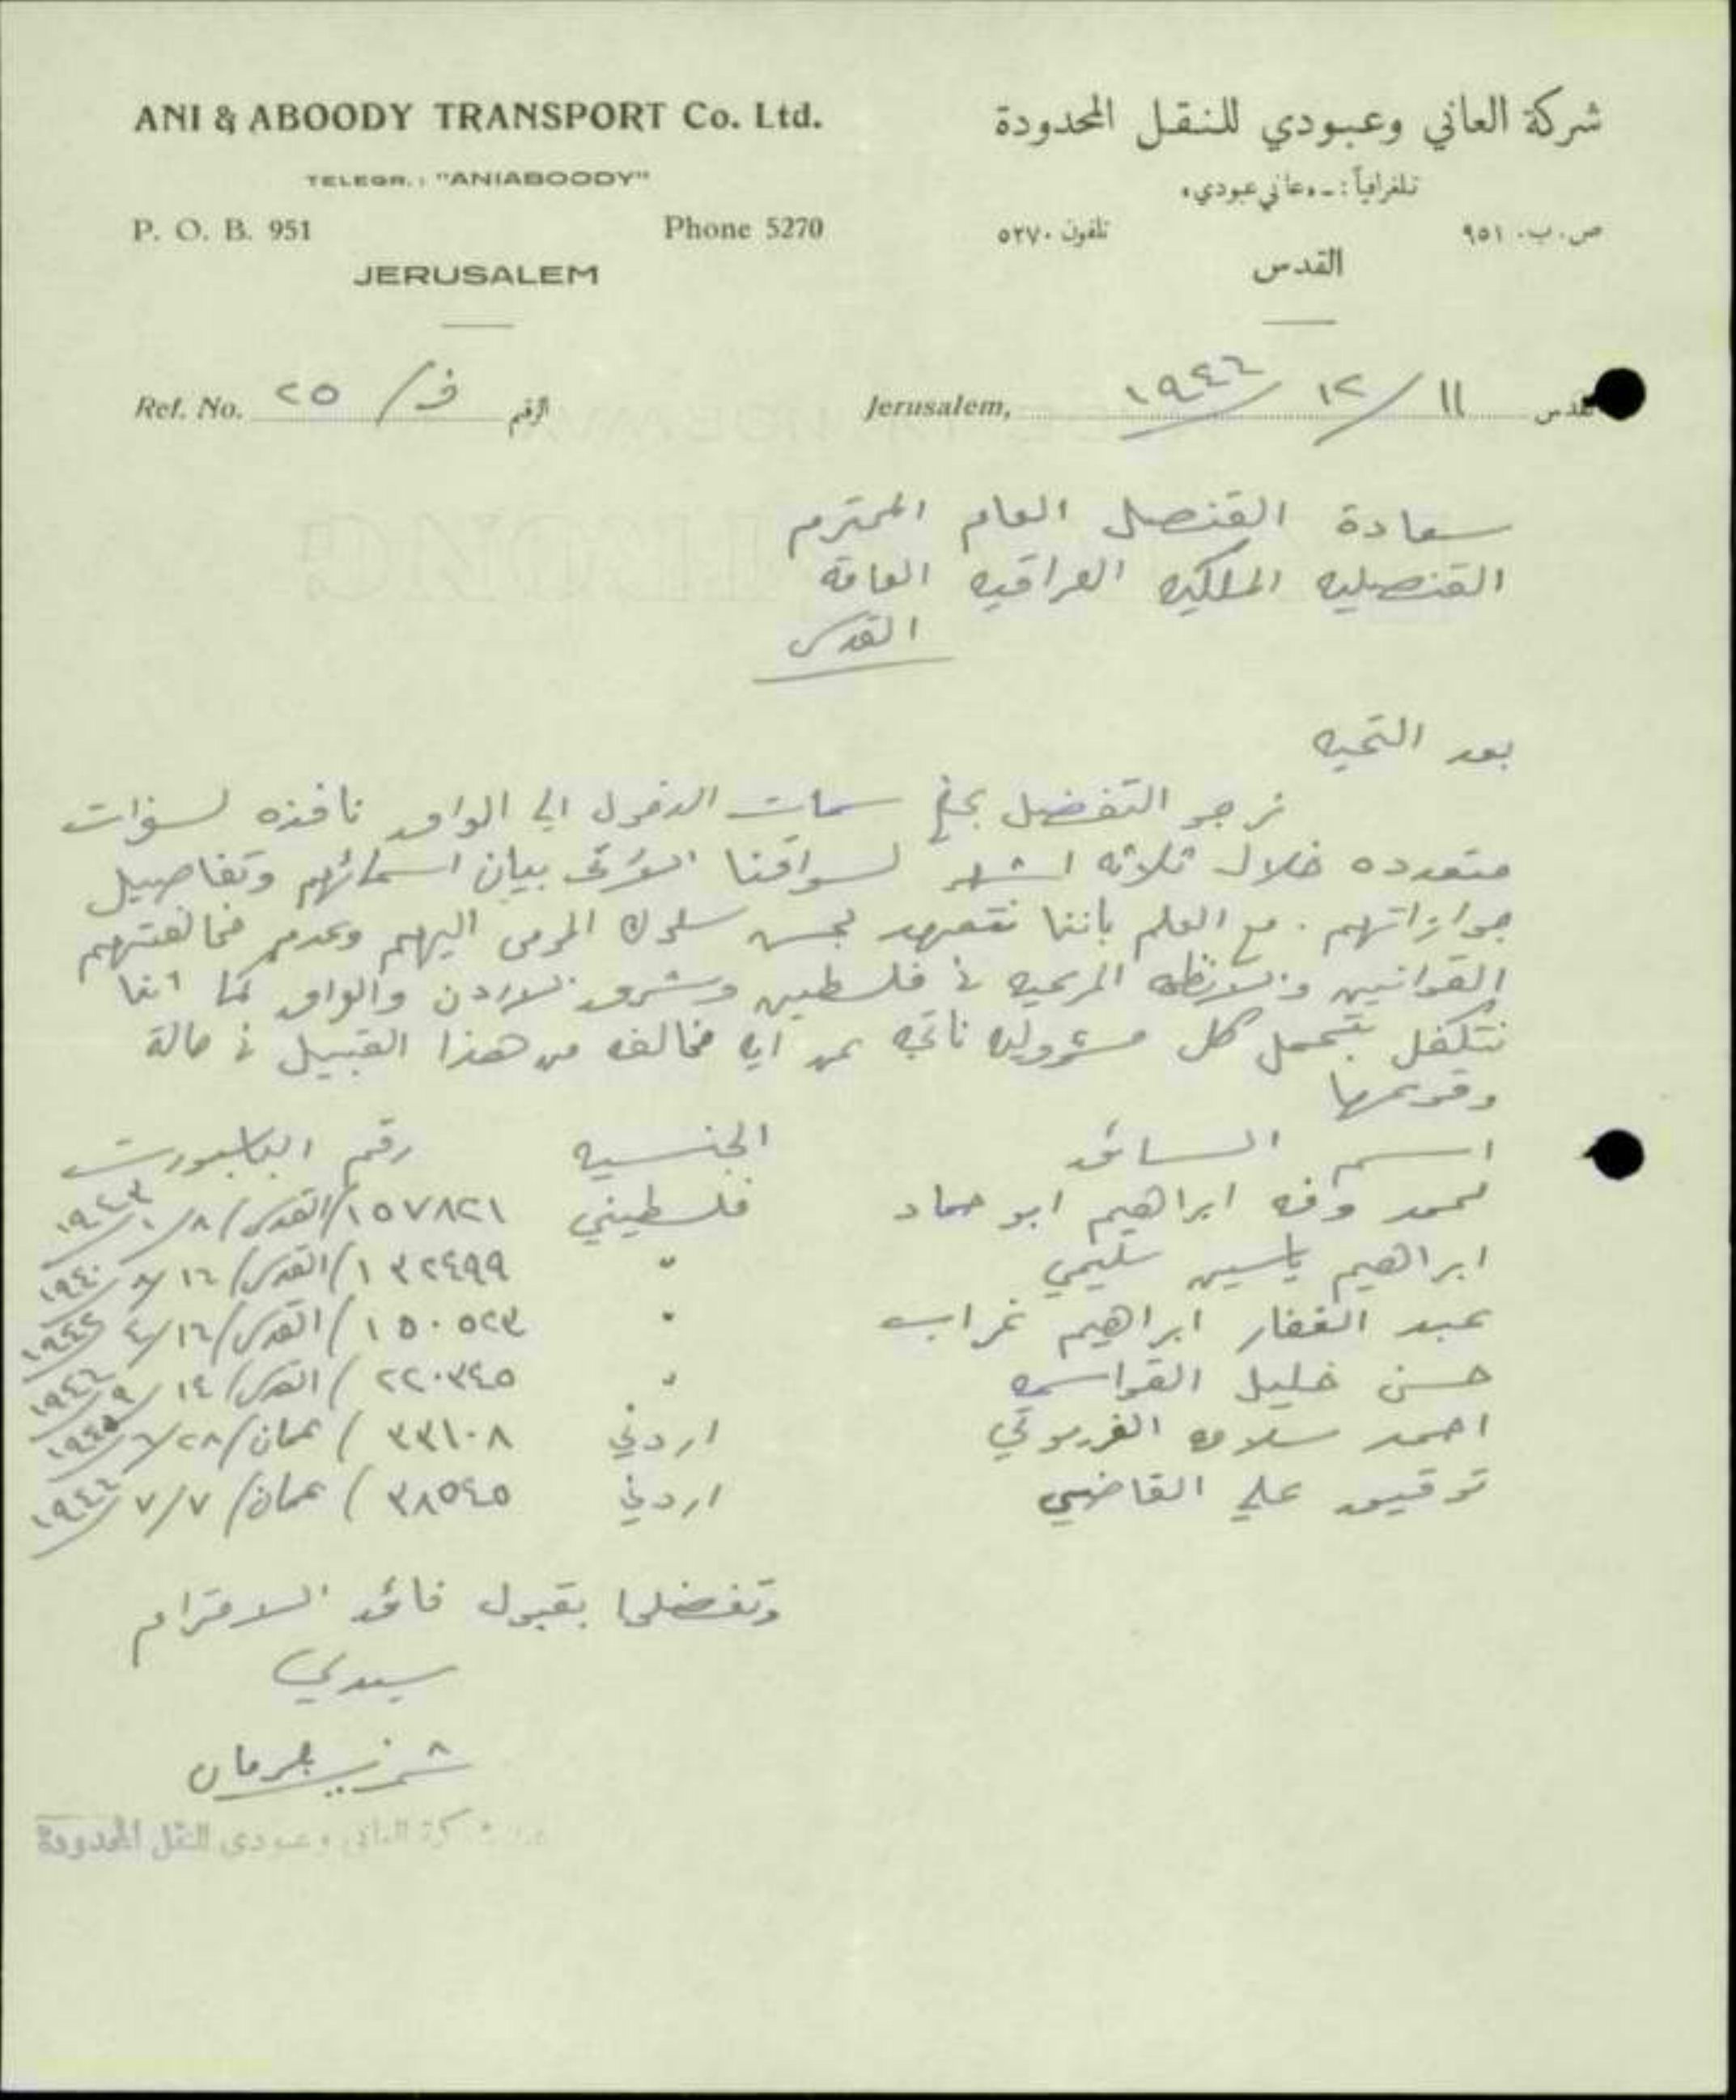 ANI & ABOODY TRANSPORT Co. Ltd.
TELEGR.: "ANIABOODY"
P. O. B. 951 Phone 5270
JERUSALEM
شركة العاني وعبودي للنقل المحدودة
تلغرافياً :ـ «عاني عبودي»
ص. ب. ٩٥١ تلفون ٥٢٧٠
القدس
Ref. No. ف / ٢٥ الرقم
Jerusalem, ١١ / ١٢ / ١٩٤٦ القدس
سعادة القنصل العام المحترم
القنصليه الملكيه العراقيه العامة
القدس
بعد التحيه
نرجو التفضل بمنح سمات الدخول الى العراق نافذه لسفرات
متعدده خلال ثلاثه اشهر لسواقنا الآتى بيان اسمائهم وتفاصيل
جوازاتهم . مع العلم بأننا نتعهد بحسن سلوك المومى اليهم وعدم مخالفتهم
القوانين والانظمه المرعيه في فلسطين وشرق الاردن والعراق كما اننا
نتكفل بتحمل كل مسؤوليه ناتجه عن ايه مخالفه من هذا القبيل في حالة
وقوعها
اسم السائق الجنسيه رقم الباسبورت
محمد وفه ابراهيم ابو حماد فلسطيني ١٥٧٨٢١ / القدس / ٨ / ١ / ١٩٤٣
ابراهيم ياسين سليمي " ١٣٢٤٩٩ / القدس / ١٦ / ٨ / ١٩٤٠
عبد الغفار ابراهيم غراب " ١٥٠٥٢٣ / القدس / ١٦ / ٤ / ١٩٤٢
حسن خليل القواسمه " ٢٢٠٣٤٥ / القدس / ١٤ / ٩ / ١٩٤٦
احمد سلامه اردني ٣٣١٠٨ / عمان / ٢٨ / ٦ / ١٩٤٥
توفيق علي القاضي اردني ٣٨٥٤٥ / عمان / ٧ / ٧ / ١٩٤٦
وتفضلوا بقبول فائق الاحترام
سيدي
شركة العاني وعبودي للنقل المحدودة